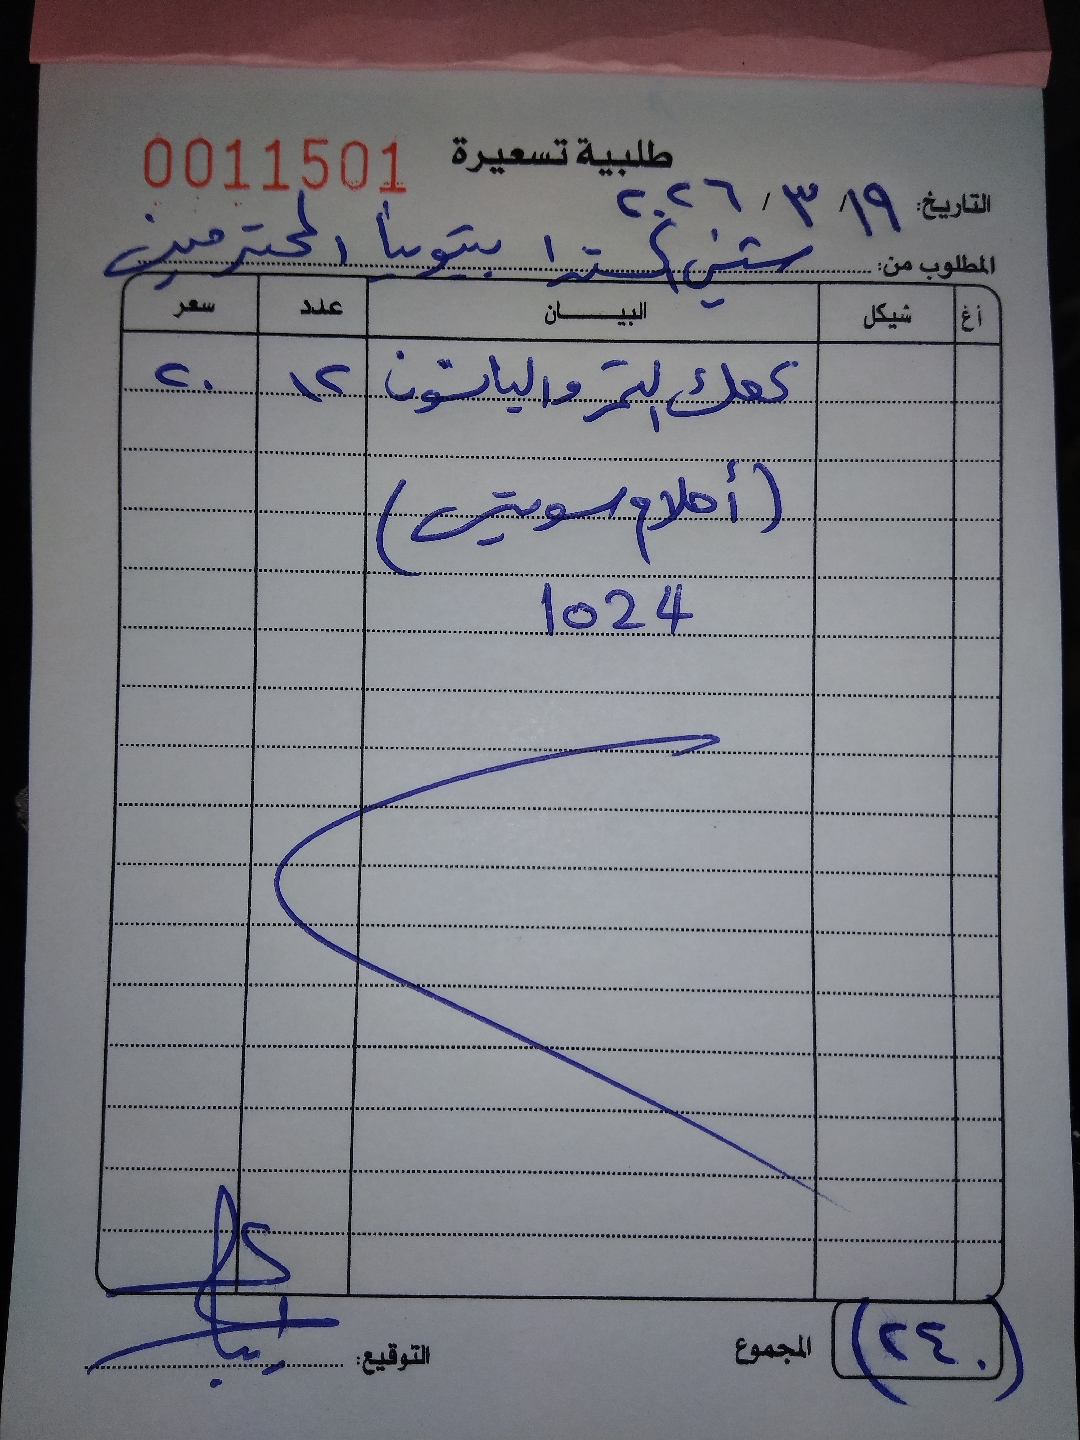 طلبية تسعيرة
0011501
التاريخ: ١٩ / ٣ / ٢٠٢٦
المطلوب من: المحترمين
أغ شيكل البيـــان عدد سعر
كعك التمر واليانسون ١٢ ٢٠
(أحلام سويتس)
1024
المجموع (٢٤٠)
التوقيع: